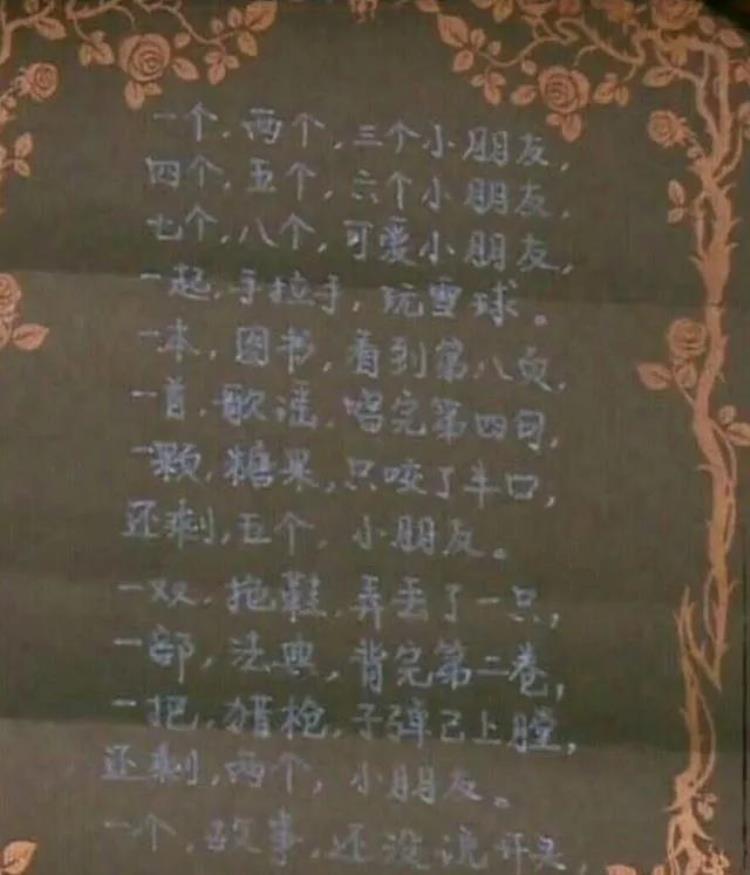 一个，两个，三个小朋友，
四个，五个，六个小朋友，
七个，八个，可爱小朋友，
一起，手拉手，玩雪球。
一本，图书，看到第八页，
一首，歌谣，唱完第四句，
一颗，糖果，只咬了半口，
还剩，五个，小朋友。
一双，拖鞋，弄丢了一只，
一部，法典，背完第二卷，
一把，猎枪，子弹已上膛，
还剩，两个，小朋友。
一个，故事，还没说开头，